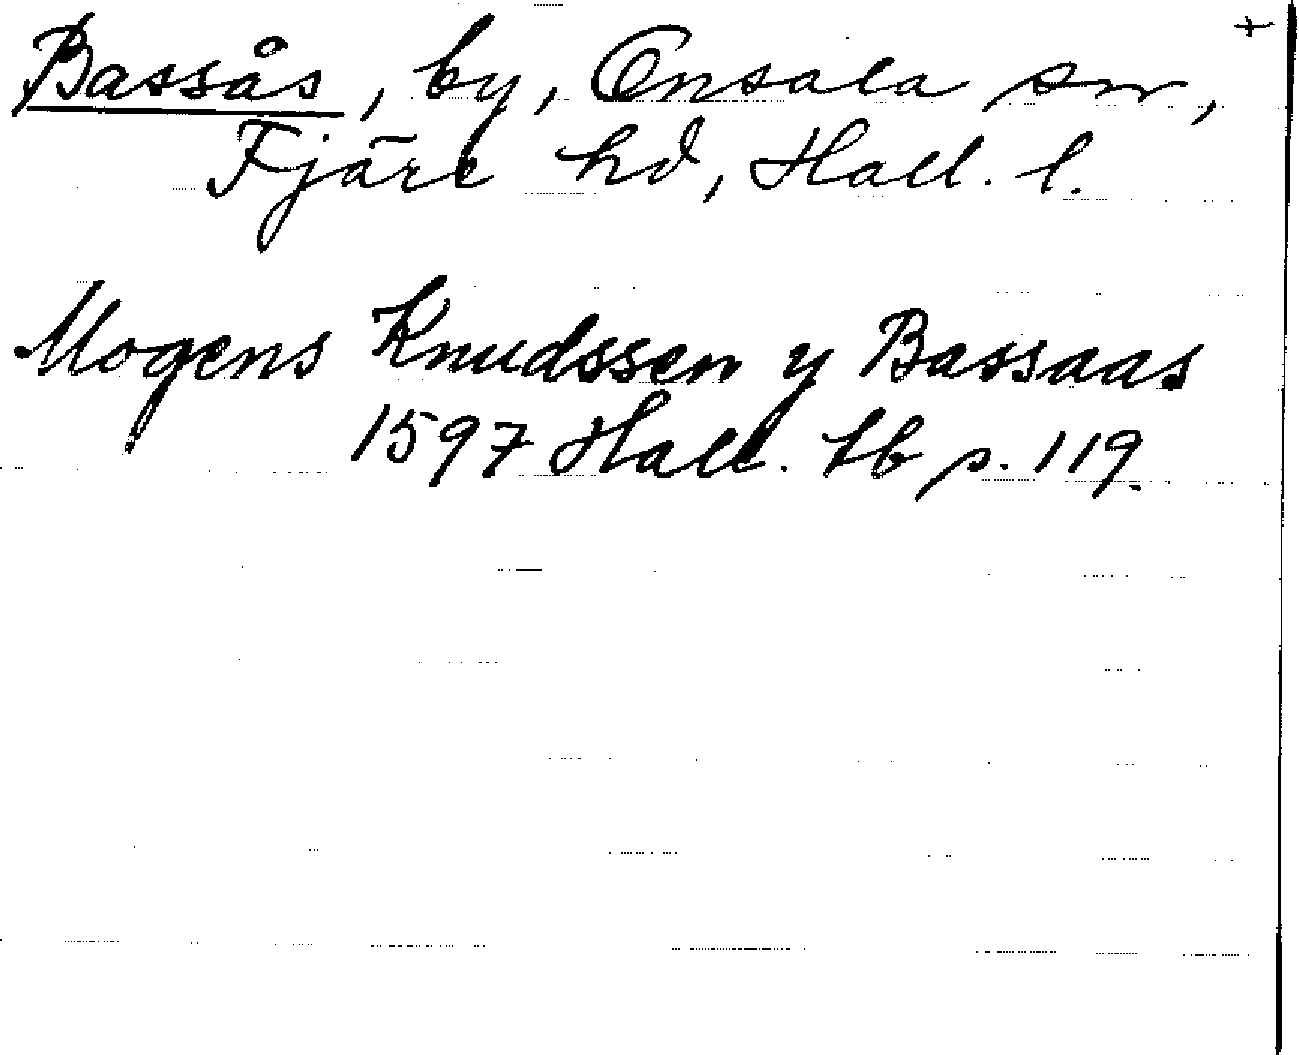 Bassås, by, Onsala sn, +
Fjäre hd, Hall. l.
Mogens Knudssen y Bassaas
1597 Hall. lb p. 119.